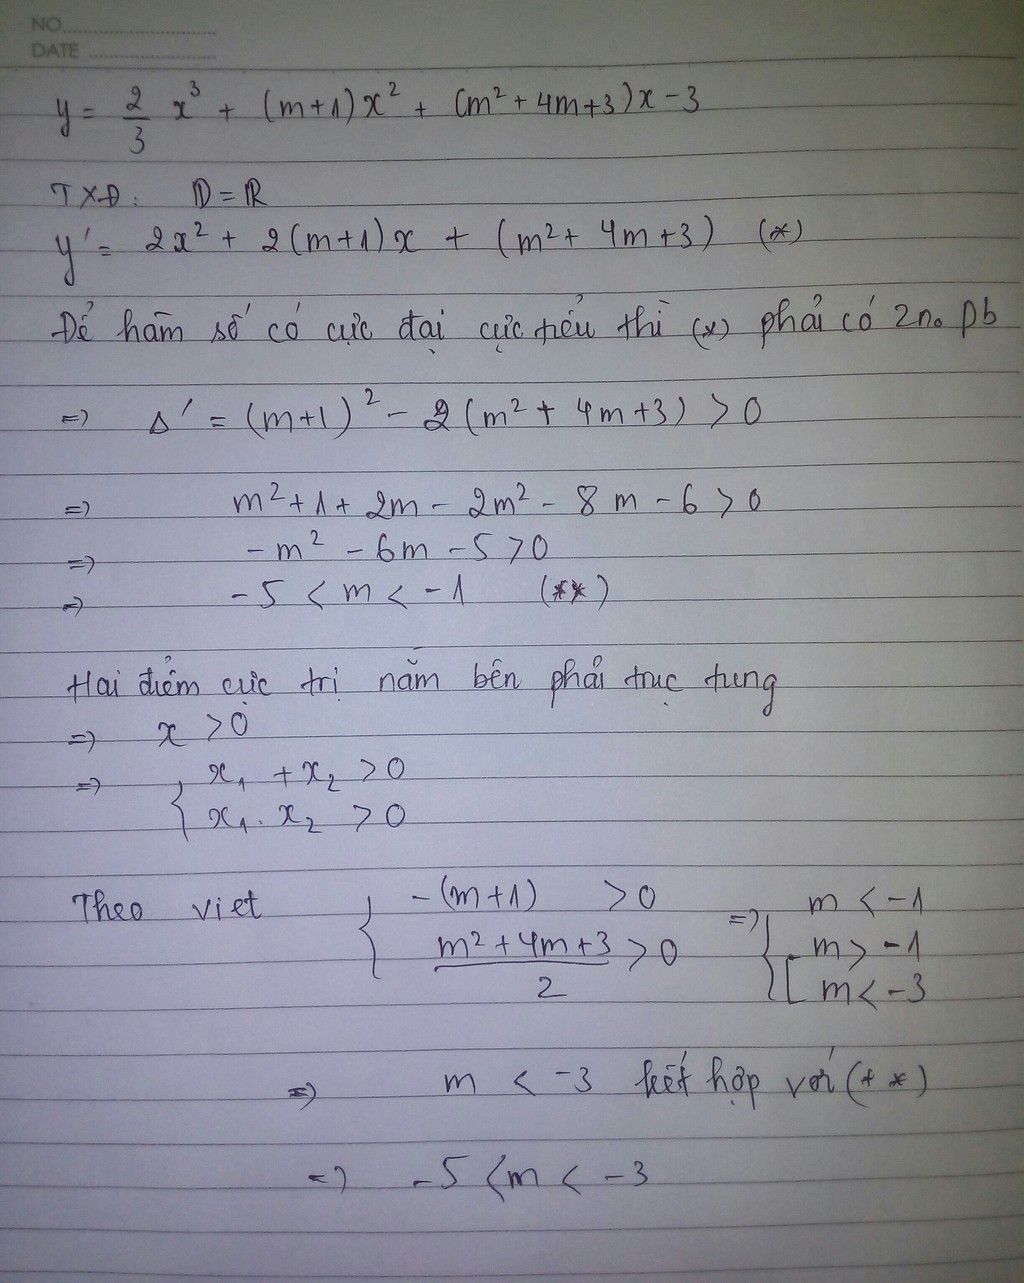 NO
DATE
y = 2/3 x³ + (m+1)x² + (m² + 4m + 3)x - 3
TXĐ: D = ℝ
y' = 2x² + 2(m+1)x + (m² + 4m + 3) (*)
Để hàm số có cực đại cực tiểu thì (*) phải có 2 no pb
=> Δ' = (m+1)² - 2(m² + 4m + 3) > 0
=> m² + 1 + 2m - 2m² - 8m - 6 > 0
=> -m² - 6m - 5 > 0
=> -5 < m < -1 (**)
Hai điểm cực trị nằm bên phải trục tung
=> x > 0
=> { x₁ + x₂ > 0
x₁ . x₂ > 0
Theo viet { -(m+1) > 0 => { m < -1
(m² + 4m + 3)/2 > 0 [ m > -1
m < -3
=> m < -3 kết hợp với (**)
=> -5 < m < -3